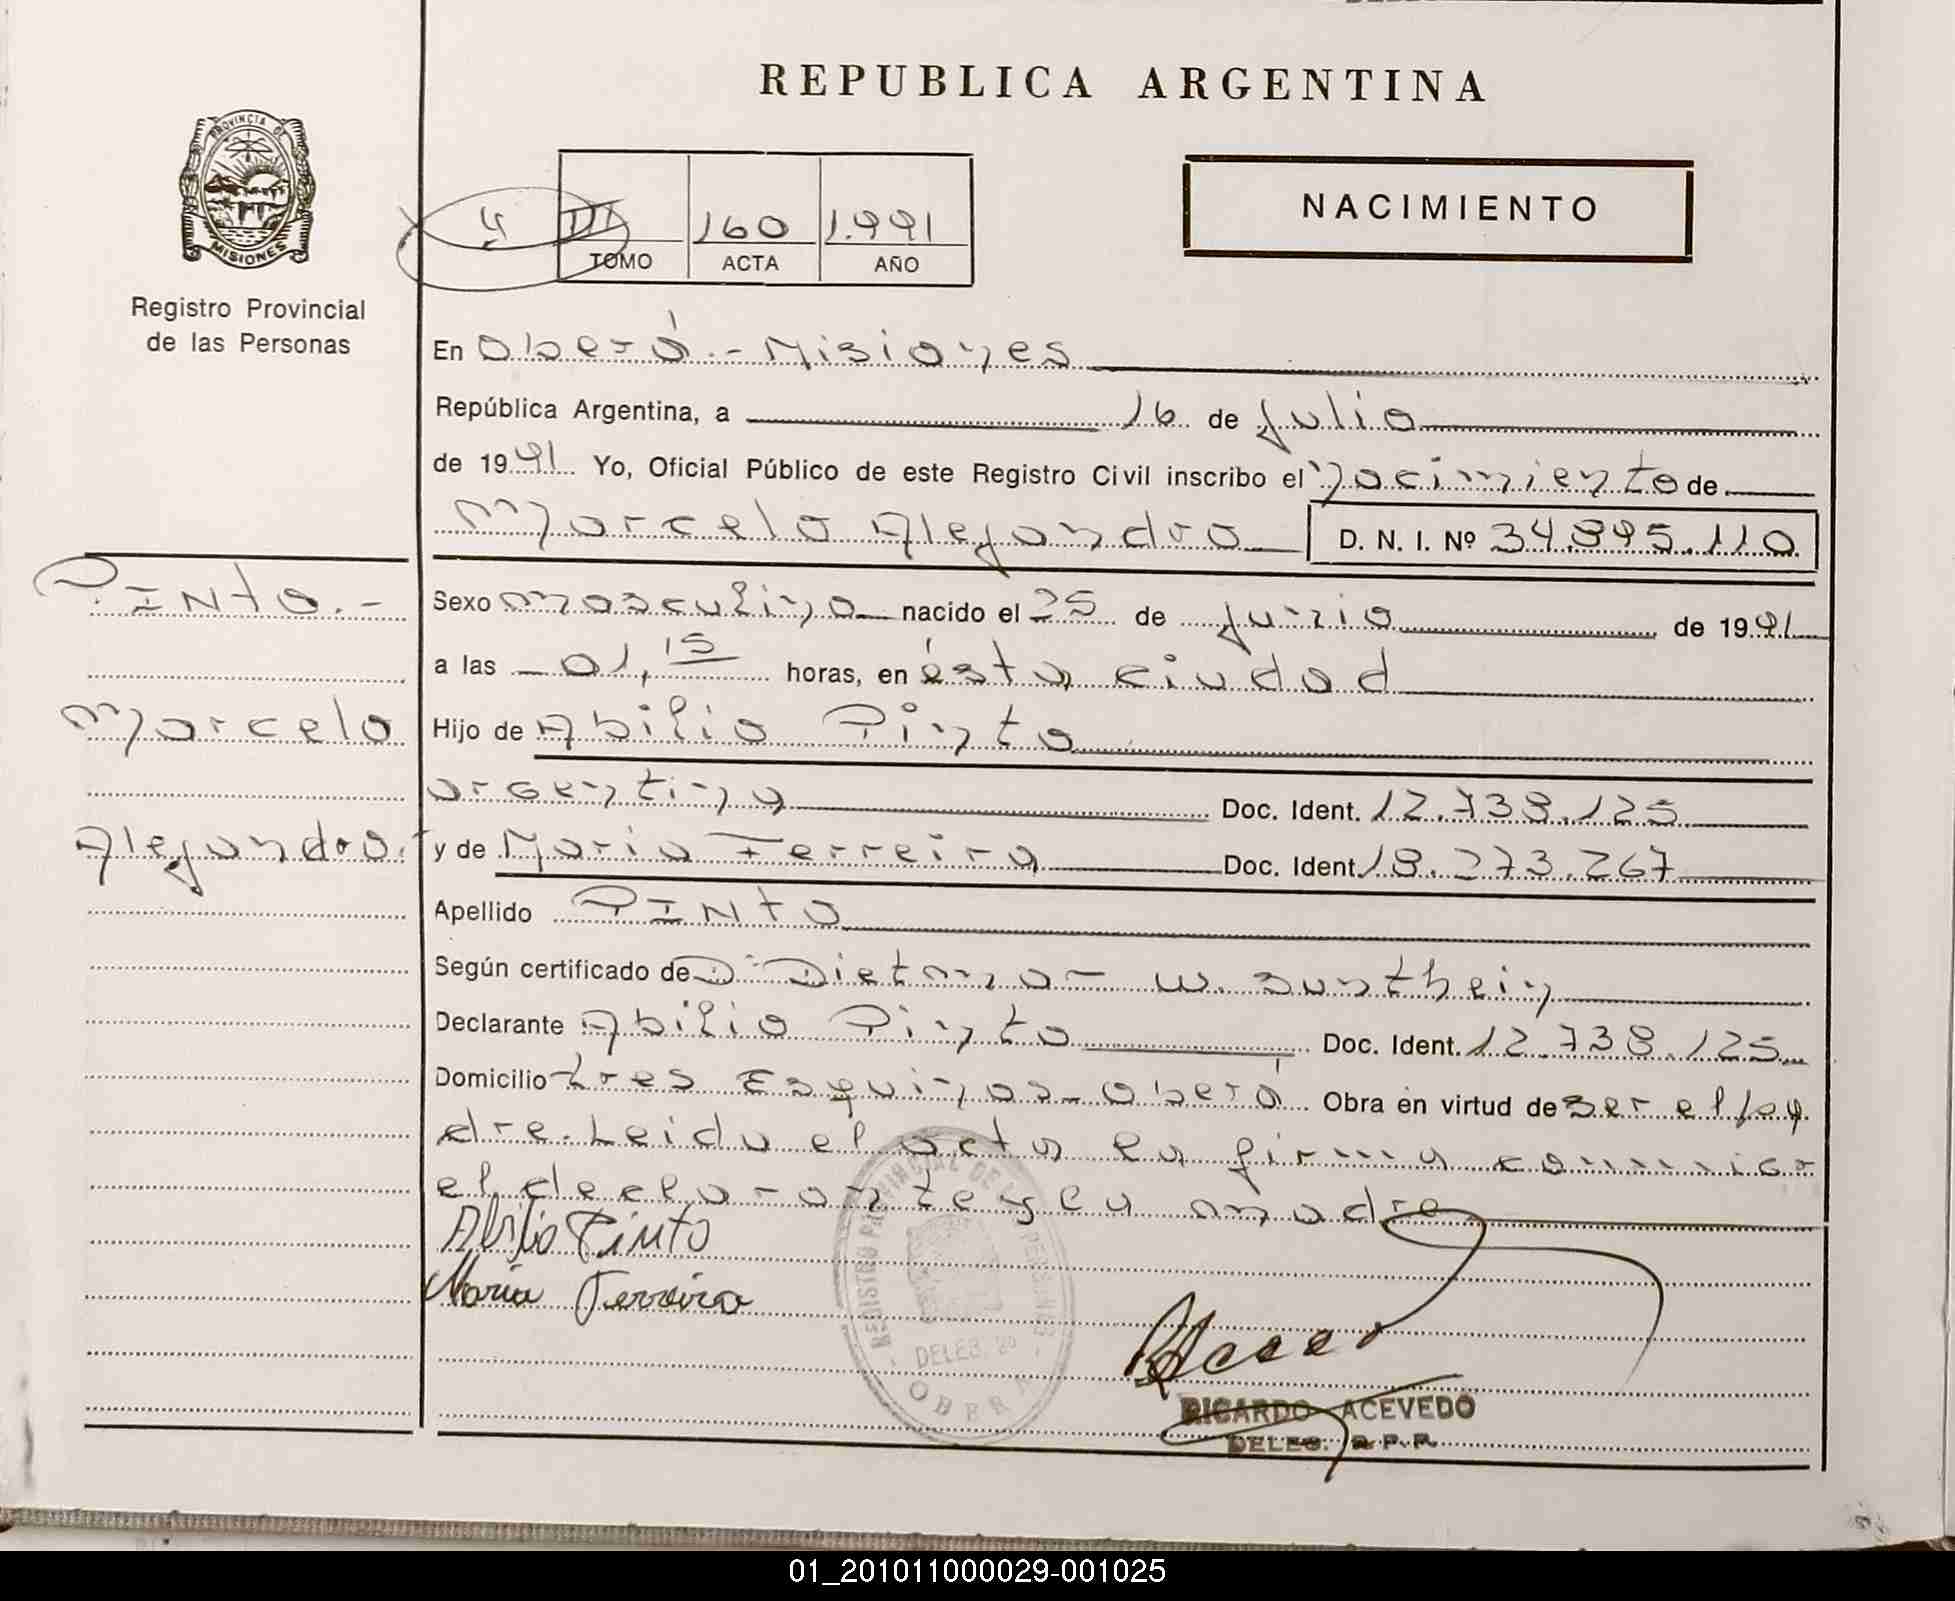 REPUBLICA ARGENTINA
PROVINCIA DE
MISIONES
Registro Provincial
de las Personas
4 III 160 1.991
TOMO ACTA AÑO
NACIMIENTO
En Oberá.- Misiones
República Argentina, a 16 de julio
de 1991 Yo, Oficial Público de este Registro Civil inscribo el nacimiento de
Marcelo Alejandro D. N. I. Nº 34.895.110
PINTO.-
Marcelo
Alejandro.-
Sexo masculino nacido el 25 de junio de 1991
a las 01,15 horas, en ésta ciudad
Hijo de Abilio Pinto
argentina Doc. Ident. 12.738.125
y de Maria Ferreira Doc. Ident. 18.273.267
Apellido PINTO
Según certificado de D. Dietmar W.
Declarante Abilio Pinto Doc. Ident. 12.738.125
Domicilio tres Esquinas-Oberá Obra en virtud de ser el pa
dre. Leida el acta la firma conmigo
el declarante y la madre
Abilio Pinto
Maria Ferreira
REGISTRO PROVINCIAL DE LAS PERSONAS
DELEG.
OBERA
RICARDO ACEVEDO
DELEG. R.P.P.
01_201011000029-001025